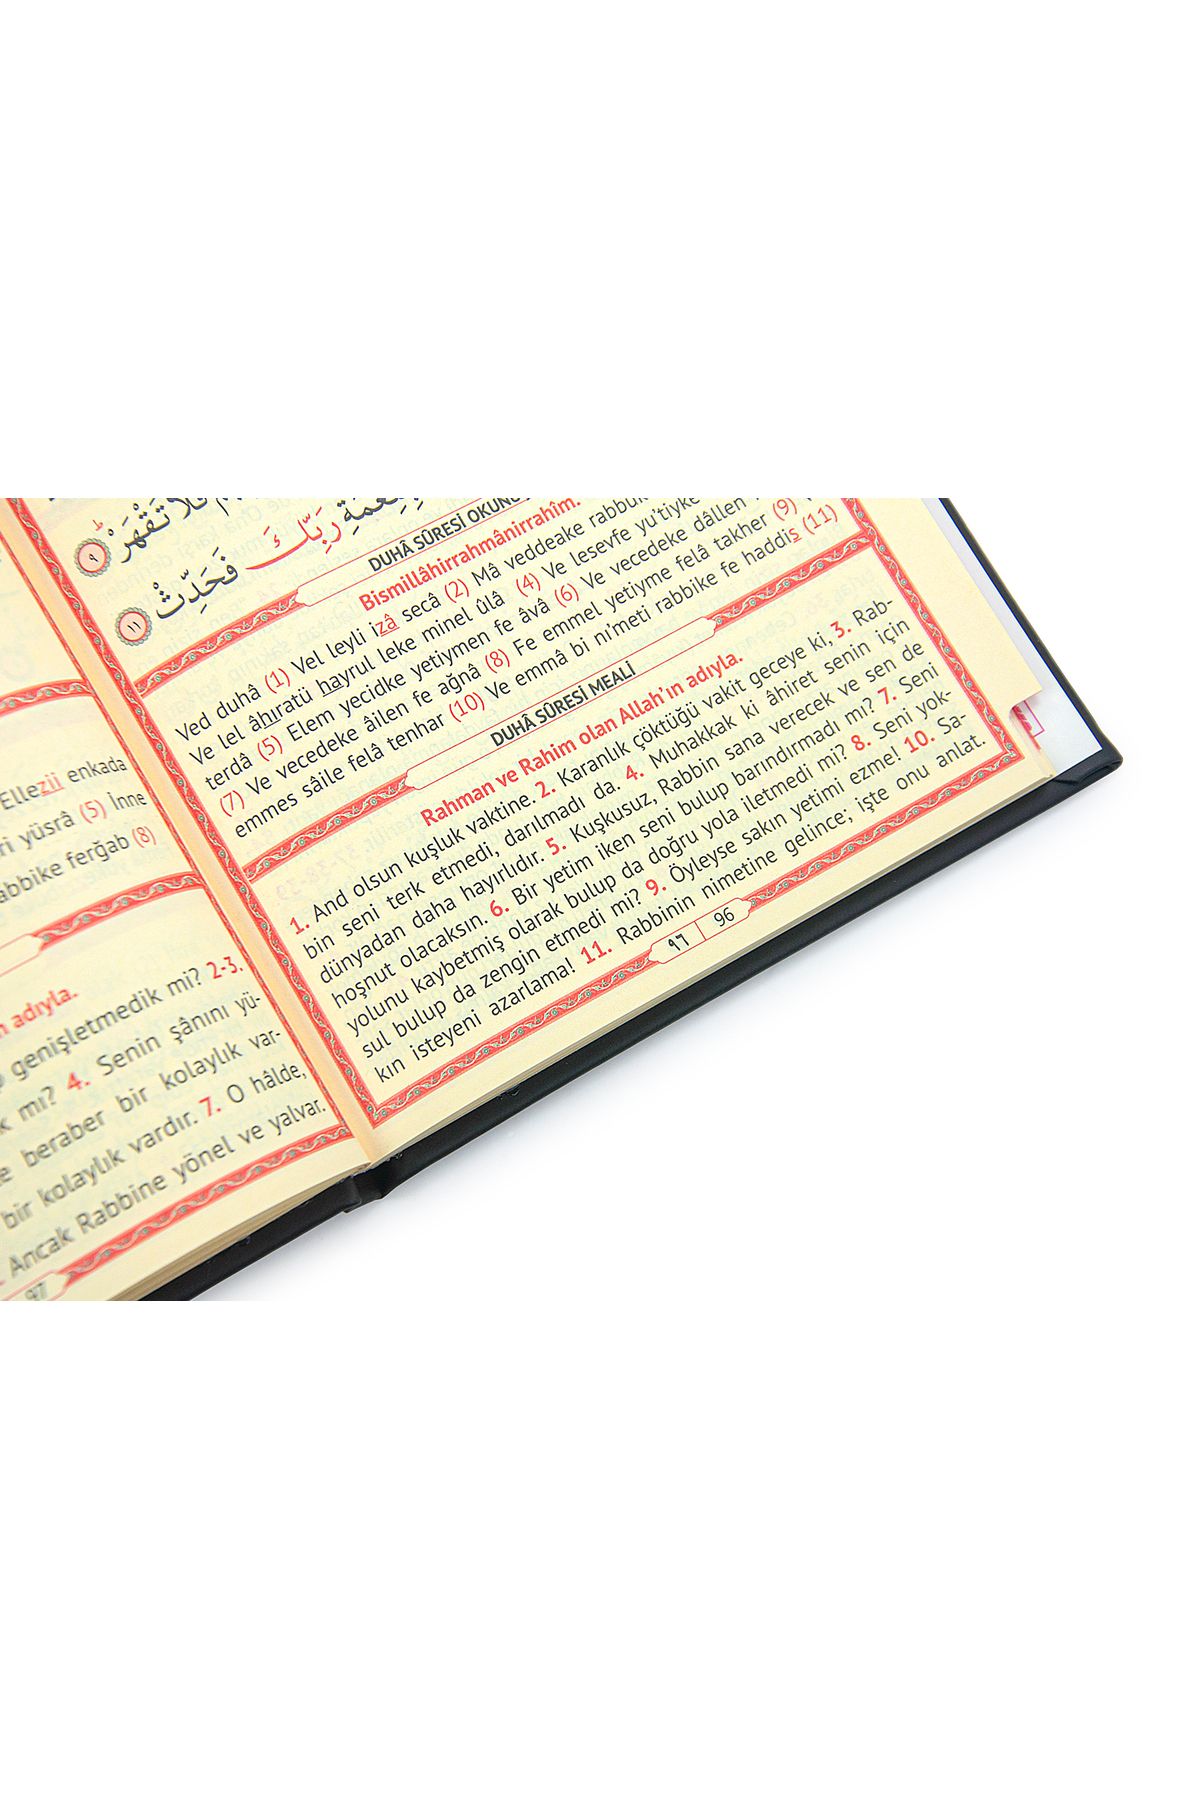 فَلَا تَقْهَرْ ٩
رَبِّكَ فَحَدِّثْ ١١
DUHÂ SÛRESİ
Bismillâhirrahmânirrahîm.
Ved duhâ (1) Vel leyli izâ secâ (2) Mâ veddeake
Ve lel âhıratü hayrul leke minel ûlâ (4) Ve lesevfe yu’tiyke
terdâ (5) Elem yecidke yetiymen fe âvâ (6) Ve vecedeke dâllen
(7) Ve vecedeke âilen fe ağnâ (8) Fe emmel yetiyme felâ takher (9)
emmes sâile felâ tenhar (10) Ve emmâ bi nı’meti rabbike fe haddis (11)
DUHÂ SÛRESİ MEALİ
Rahman ve Rahim olan Allah’ın adıyla.
1. And olsun kuşluk vaktine. 2. Karanlık çöktüğü vakit geceye ki, 3. Rab-
bin seni terk etmedi, darılmadı da. 4. Muhakkak ki âhiret senin için
dünyadan daha hayırlıdır. 5. Kuşkusuz, Rabbin sana verecek ve sen de
hoşnut olacaksın. 6. Bir yetim iken seni bulup barındırmadı mı? 7. Seni
yolunu kaybetmiş olarak bulup da doğru yola iletmedi mi? 8. Seni yok-
sul bulup da zengin etmedi mi? 9. Öyleyse sakın yetimi ezme! 10. Sa-
kın isteyeni azarlama! 11. Rabbinin nimetine gelince; işte onu anlat.
٩٦ 96
Ellezii enkada
yüsrâ (5) İnne
ferğab (8)
adıyla.
genişletmedik mi? 2-3.
mı? 4. Senin şânını yü-
beraber bir kolaylık var-
bir kolaylık vardır. 7. O hâlde,
Ancak Rabbine yönel ve yalvar.
97